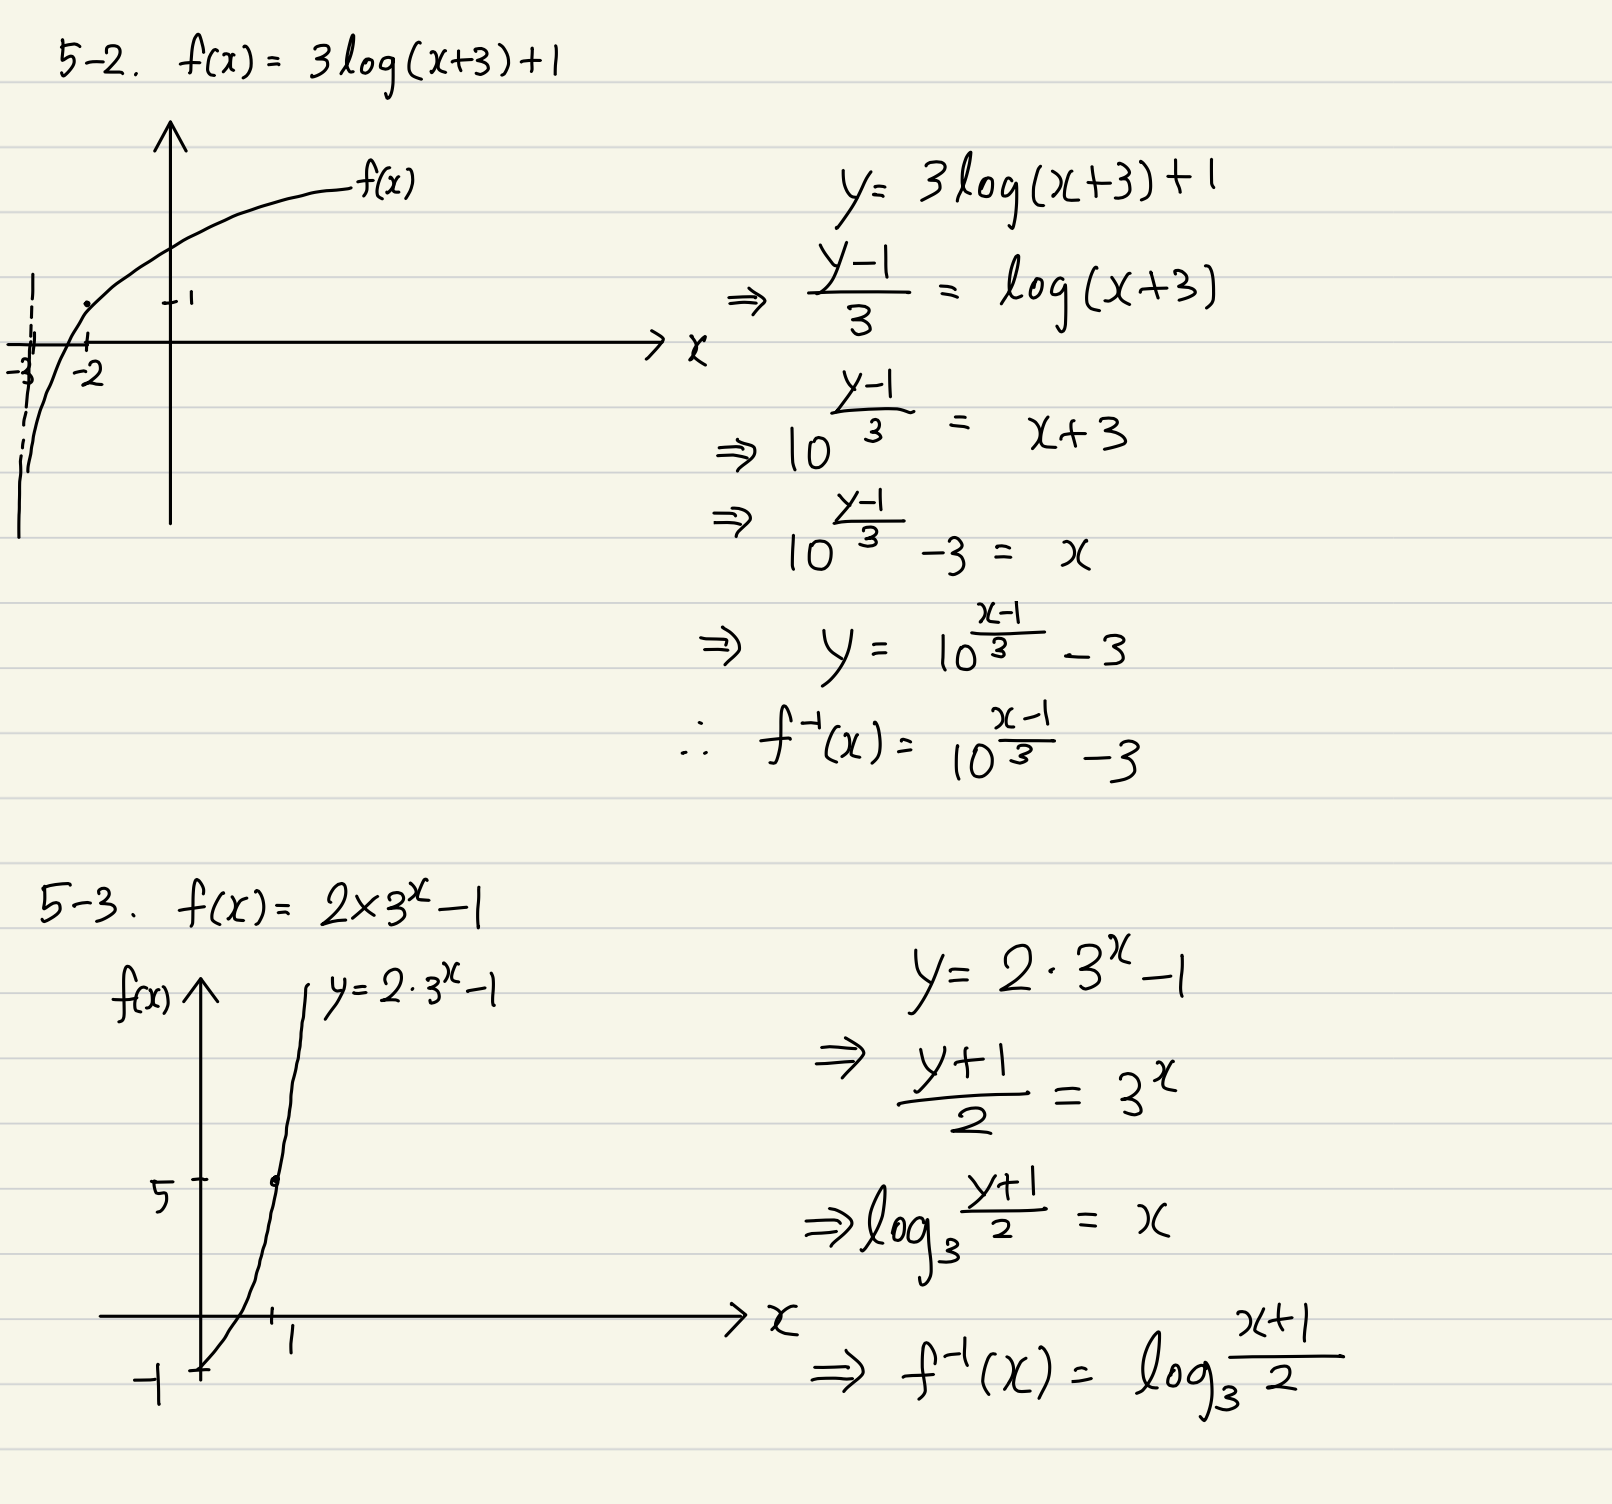 5-2. f(x) = 3log(x+3)+1
f(x)
1
-3 -2
x
y = 3log(x+3)+1
⇒ (y-1)/3 = log(x+3)
⇒ 10^((y-1)/3) = x+3
⇒ 10^((y-1)/3) -3 = x
⇒ y = 10^((x-1)/3) - 3
∴ f⁻¹(x) = 10^((x-1)/3) - 3
5-3. f(x) = 2×3^x -1
f(x)
y = 2·3^x -1
5
1
-1
x
y = 2·3^x -1
⇒ (y+1)/2 = 3^x
⇒ log₃ (y+1)/2 = x
⇒ f⁻¹(x) = log₃ (x+1)/2